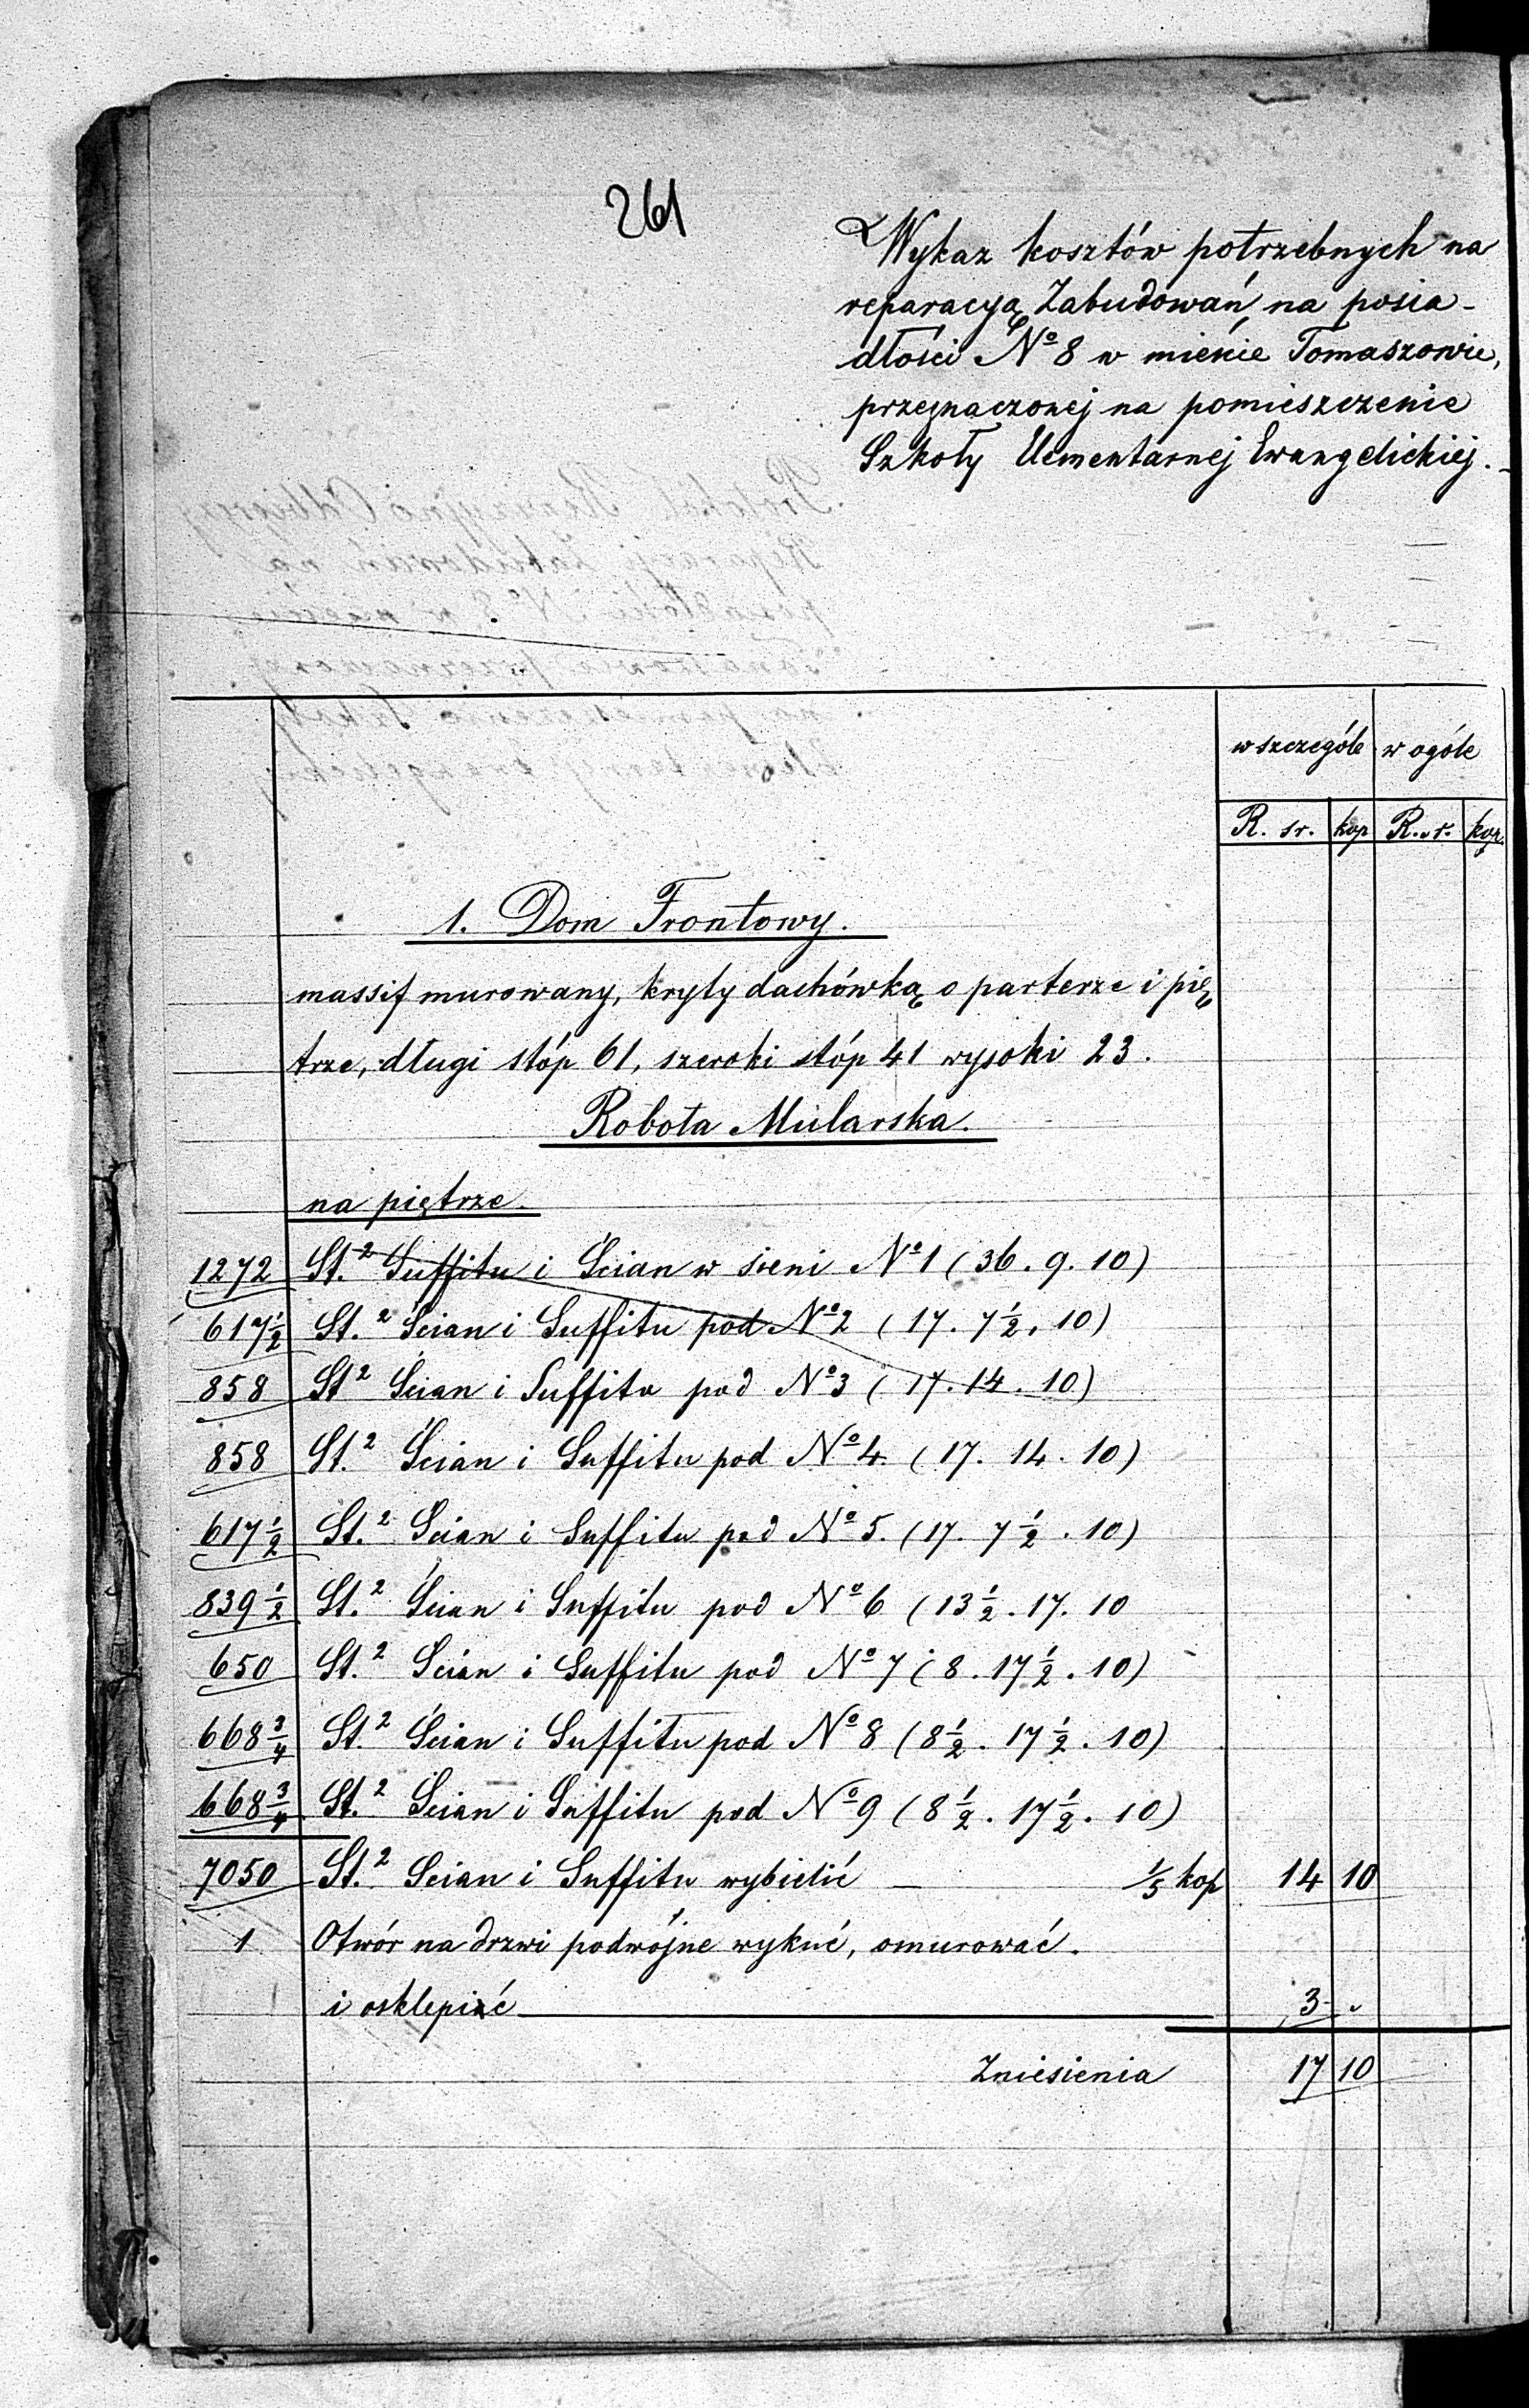 261
Wykaz kosztów potrzebnych na
reparacyą Zabudowań na posia-
dłości № 8 w mieście Tomaszowie,
przeznaczonej na pomieszczenie
Szkoły Elementarnej Ewangelickiej.
w szczególe w ogóle
R. sr. kop R. sr. kop.
1. Dom Frontowy.
massif murowany, kryty dachówką o parterze i pię
trze, długi stóp 61, szeroki stóp 41 wysoki 23.
Robota Mularska.
na piętrze.
1272 St.² Suffitu i Ścian w sieni № 1 (36. 9. 10)
617½ St.² Ścian i Suffitu pod № 2 (17. 7½. 10)
858 St² Ścian i Suffitu pod № 3 (17. 14. 10)
858 St.² Ścian i Suffitu pod № 4. (17. 14. 10)
617½ St.² Ścian i Suffitu pod № 5. (17. 7½. 10)
839½ St.² Ścian i Suffitu pod № 6 (13½. 17. 10
650 St.² Ścian i Suffitu pod № 7 (8. 17½. 10)
668¾ St.² Ścian i Suffitu pod № 8 (8½. 17½. 10)
668¾ St.² Ścian i Suffitu pod № 9 (8½. 17½. 10)
7050 St.² Scian i Suffitu wybielić — ⅕ kop 14 10
1 Otwór na drzwi podwójne wykuć, omurować.
i osklepić 3 „
Zniesienia 17 10